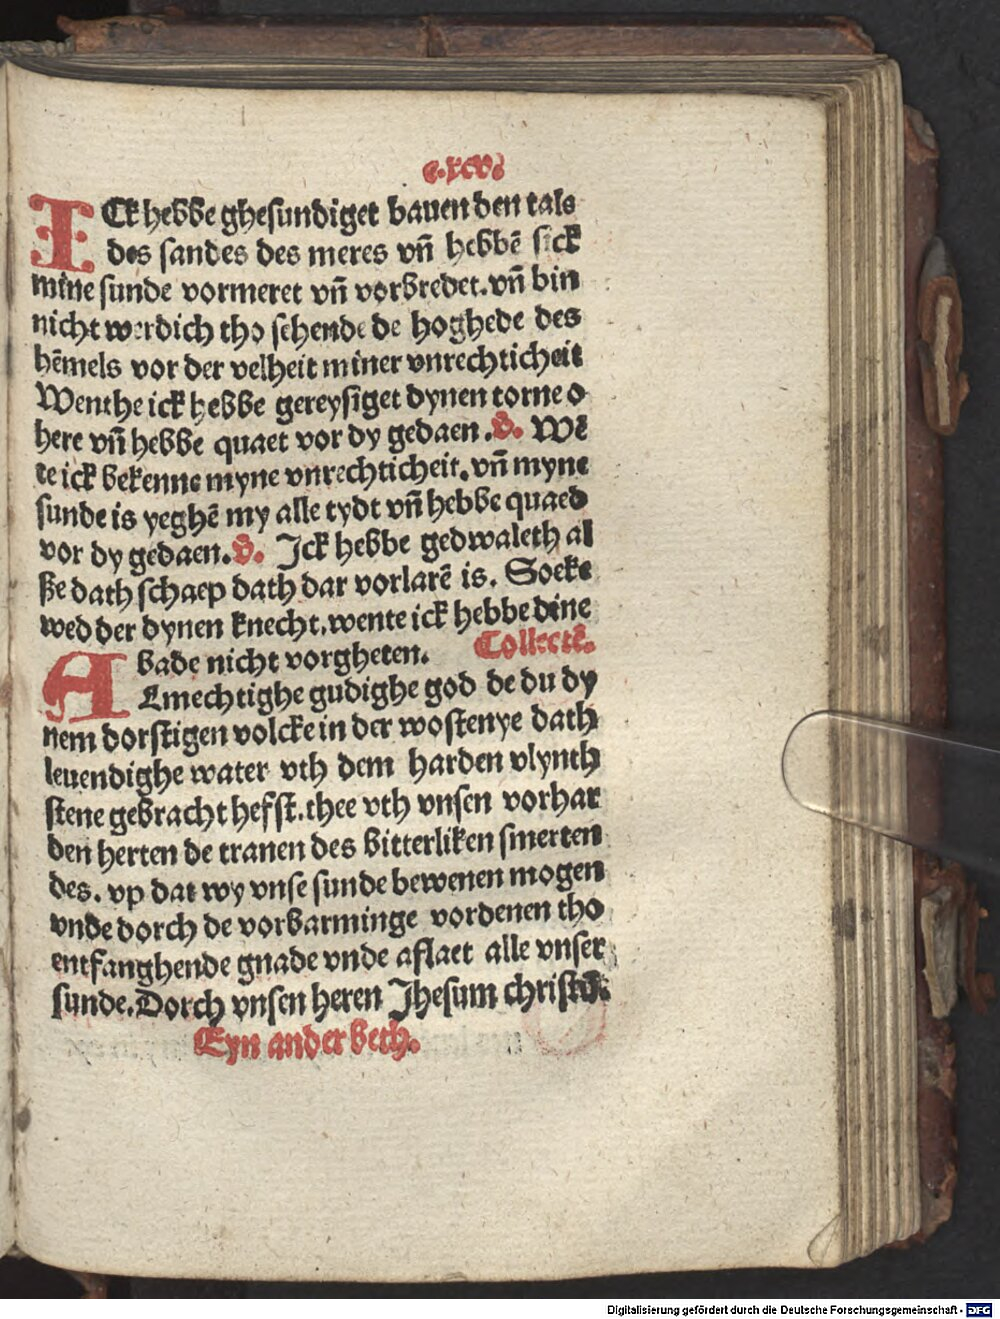 c.xcvi
ICk hebbe ghesundiget bauen den tale
des sandes des meres vñ hebbē sick
mine sunde vormeret vñ vorbredet. vñ bin
nicht werdich tho sehende de hoghede des
hēmels vor der velheit miner vnrechticheit
Wenthe ick hebbe gereysiget dynen torne o
here vñ hebbe quaet vor dy gedaen. v̄. Wē
te ick bekenne myne vnrechticheit. vñ myne
sunde is yeghē my alle tydt vñ hebbe quaed
vor dy gedaen. v̄. Jck hebbe gedwaleth al
ße dath schaep dath dar vorlarē is. Soeke
wed der dynen knecht. wente ick hebbe dine
bade nicht vorgheten. Collectē.
ALmechtighe gudighe god de du dy
nem dorstigen volcke in der wostenye dath
leuendighe water vth dem harden vlynth
stene gebracht hefst. thee vth vnsen vorhar
den herten de tranen des bitterliken smerten
des. vp dat wy vnse sunde bewenen mogen
vnde dorch de vorbarminge vordenen tho
entfanghende gnade vnde aflaet alle vnser
sunde. Dorch vnsen heren Jhesum christū.
Eyn ander beth.
Digitalisierung gefördert durch die Deutsche Forschungsgemeinschaft - DFG